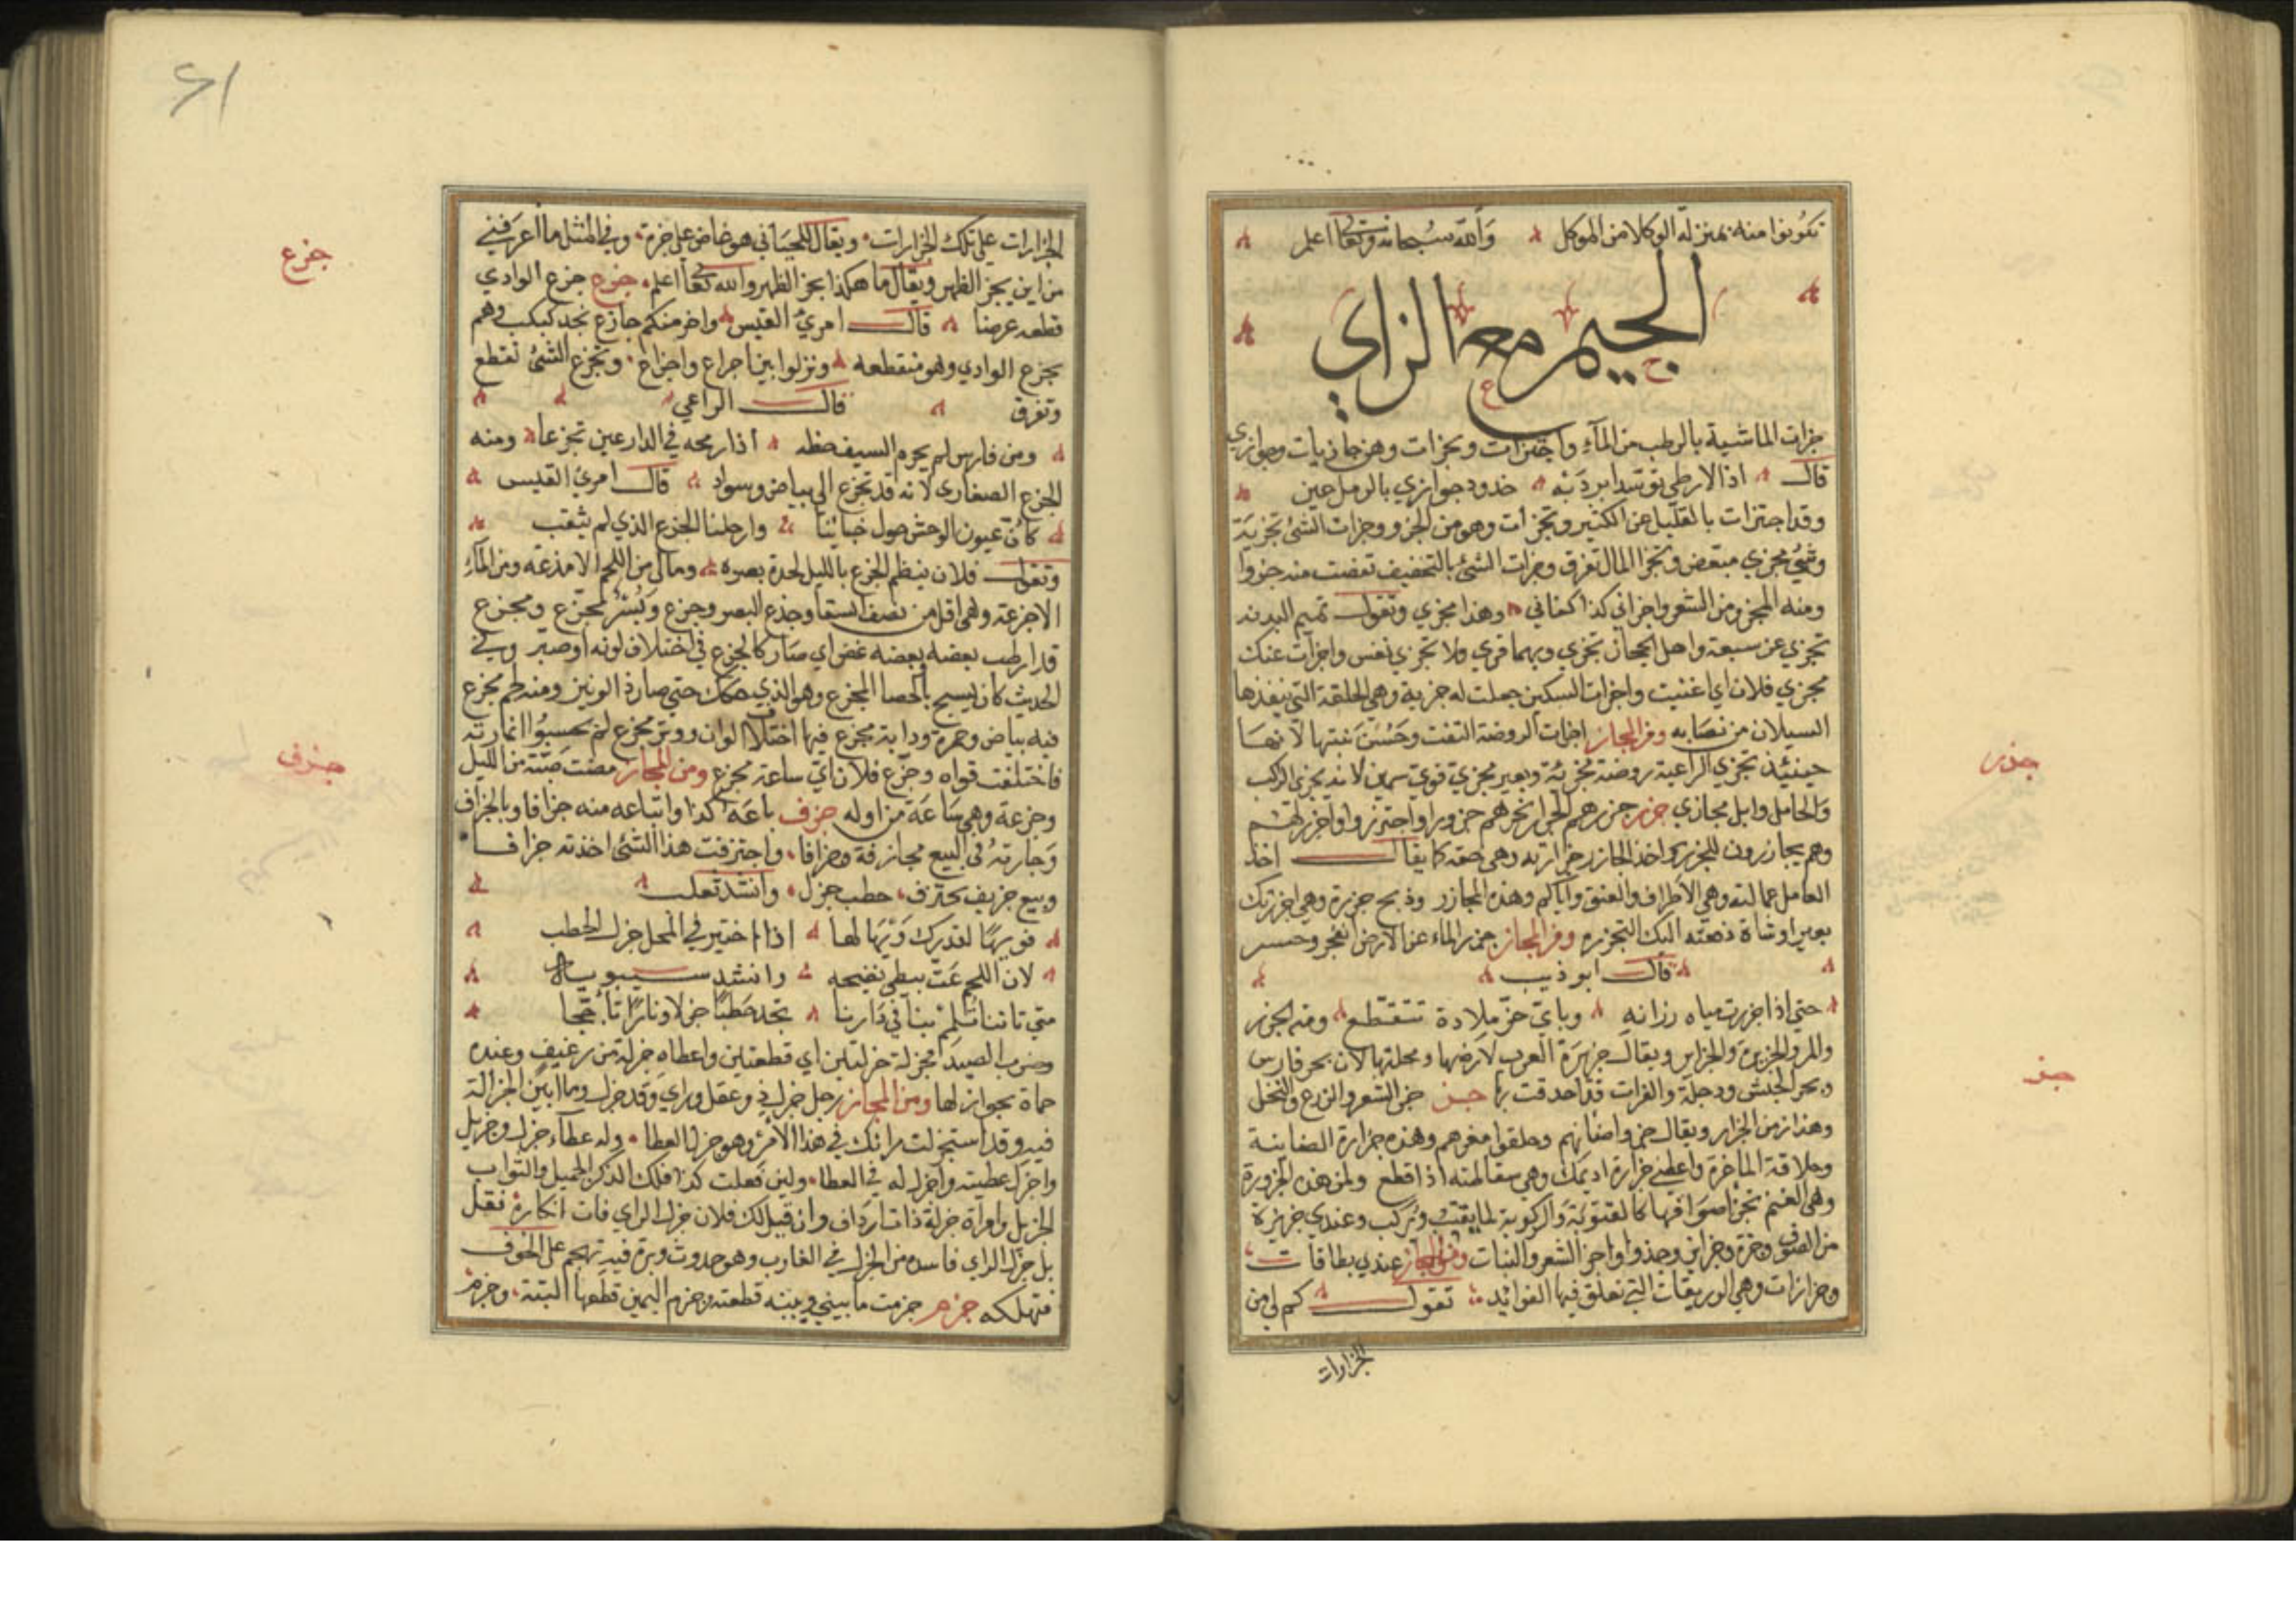 تكونوا منه بمنزلة الوكلا من الموكل والله سبحانه وتعالى اعلم
الجيم مع الزاي
جزات الماشية بالرطب من المآء واجتزات وتجزات وهن جازيات وجوازي
قال اذا الارطى توسد ابرديه خدود جوازي بالرمل عين
وقد اجتزات بالقليل عن الكثير وتجزات وهو من الجزو وجزات الشئ تجزية
وشئ مجزي مبعض وتجزا المال تفرق وجزات الشئ بالتخفيف نقصت منه جزوا
ومنه المجزو من الشعر واجزاني كذا كفاني وهذا مجزي وتقول تميم البدنه
تجزي عن سبعة واهل الحجاز تجزي وبهما قري ولا تجزي نفس واجزات عنك
مجزي فلان اي اغنيت واجزات السكين جعلت له جزية وهي الحلقة التي ينفذها
السيلان من نصابه ومن المجاز اجزات الروضة التفت وحسن نبتها لانها
حينئذ تجزي الراعية روضة مجزئة وبعير مجزي قوي سمين لانه يجزي الركب
والحامل وابل مجازي جزر جزر هم الجزار نحرهم جزورا واجتزروا واجزرتهم
وهم يجازرون للجزر واخذ الجازر جزارته وهي حقه كما يقال اخذ
العامل عمالته وهي الاطراف والعنق واياكم وهذه المجازر وذبح جزيرة وهي اجزرتك
بعيرا وشاة دفعته اليك لتجزره ومن المجاز جزر الماء عن الارض انفجر وحسر
قال ابو ذيب
حتي اذا جزرت مياه رزانه وباي حز ملادة تتقطع ومنه الجزر
والمد والجزيرة والجزاير ويقال جزيرة العرب لارضها ومحلتها لان بحر فارس
وبحر الحبش ودجلة والفرات قد احدقت بها جز جز الشعر والزرع والنخل
وهذا زمن الجزاز ويقال جزوا ضانهم وحلقوا معزهم وهذه جزازة الضاينة
وحلاقة الماعزة واعطني جزازة اديمك وهي سقاطته اذا قطع ولمن هذه الجزوزة
وهي الغنم تجز اصوافها كالقتوبة والركوبة لما يقتب ويركب وعندي جزيزة
من الصوف وجزة وجزايز وجذوا واجز الشعر والنبات ومن المجاز عندي بطاقات
وجزازات وهي الوريقات التي تعلق فيها الفوائد تقول كم لي من
الجزازات
جزر
جز
الجزازات على تلك الجزازات ويقال للحياني هو عاض على جزة وفي المثل ما اعرفني
من اين يجز الظهر ويقال ما هكذا يجز الظهر والله تعالى اعلم جزع جزع الوادي
قطعه عرضا قال امرئ القيس واخر منكم جازع نجد كبكب وهم
بجزع الوادي وهو منقطعه ونزلوا بين اجراع واجزاع وتجزع الشئ تقطع
وتفرق قال الراعي
ومن فارس لم يحرم السيف حظه اذا رمحه في الدارعين تجزعا ومنه
الجزع الصفاري لانه قد تجزع الى بياض وسواد قال امرئ القيس
كان عيون الوحش حول خبائنا وارحلنا الجزع الذي لم يثقب
وتقول فلان ينظم الجزع بالليل لحدة بصره وما لي من اللحم الا مذعة ومن المآء
الا جزعة وهي اقل من نصف السقا وجذع البصر وجزع وبسر مجزع ومجزع
قد ارطب بعضه وبعضه غض اي صار كالجزع في اختلاف لونه او صير وفي
الحديث كان يسبح بالحصا المجزع وهو الذي حكك حتي صار ذا لونين ومنه لحم مجزع
فيه بياض وحمرة ودابة مجزع فيها اختلاف الوان ووتر مجزع لم يحسنوا اغارته
فاختلفت قواه وجزع فلان اي ساعة مجزع ومن المجاز مضت صبة من الليل
وجزعة وهي ساعة من اوله جزف باعه كذا وابتاعه منه جزافا وبالجزاف
وجازته في البيع مجازفة وجزافا واجتزفت هذا الشئ اخذته جزافا
وبيع جزيف حطب جزل وانشد ثعلب
فويها لقدرك ويها لها اذا اختير في المحل جزل الحطب
لان اللحم غث يبطي نضيحه وانشد سيبويه
متي تاتنا تلمم بنا في دارنا تجد حطبا جزلا ونارا تأججا
وضرب الصيد فجزله جزلتين اي قطعتين واعطاه جزلة من رغيف وعنده
حماة بجوازلها ومن المجاز رجل جزل ذو عقل وراي وقد جزل وما ابين الجزالة
فيه وقد استجزلت رايك في هذا الامر وهو جزل العطا وله عطاء جزل وجزيل
واجزل عطيته واجزل له في العطا ولين فعلت كذا فلك الذكر الجميل والثواب
الجزيل وامراة جزلة ذات ارداف وان قيل لك فلان جزل الراي فات انكاره فقل
بل جزل الراي فاسده من الجزل في الغارب وهو حدوث دبرة فيه تهجم على الجوف
فتهلكه جزم جزمت ما بيني وبينه قطعته وجزم اليمين قطعها البتة وجزم
جزع
جزف